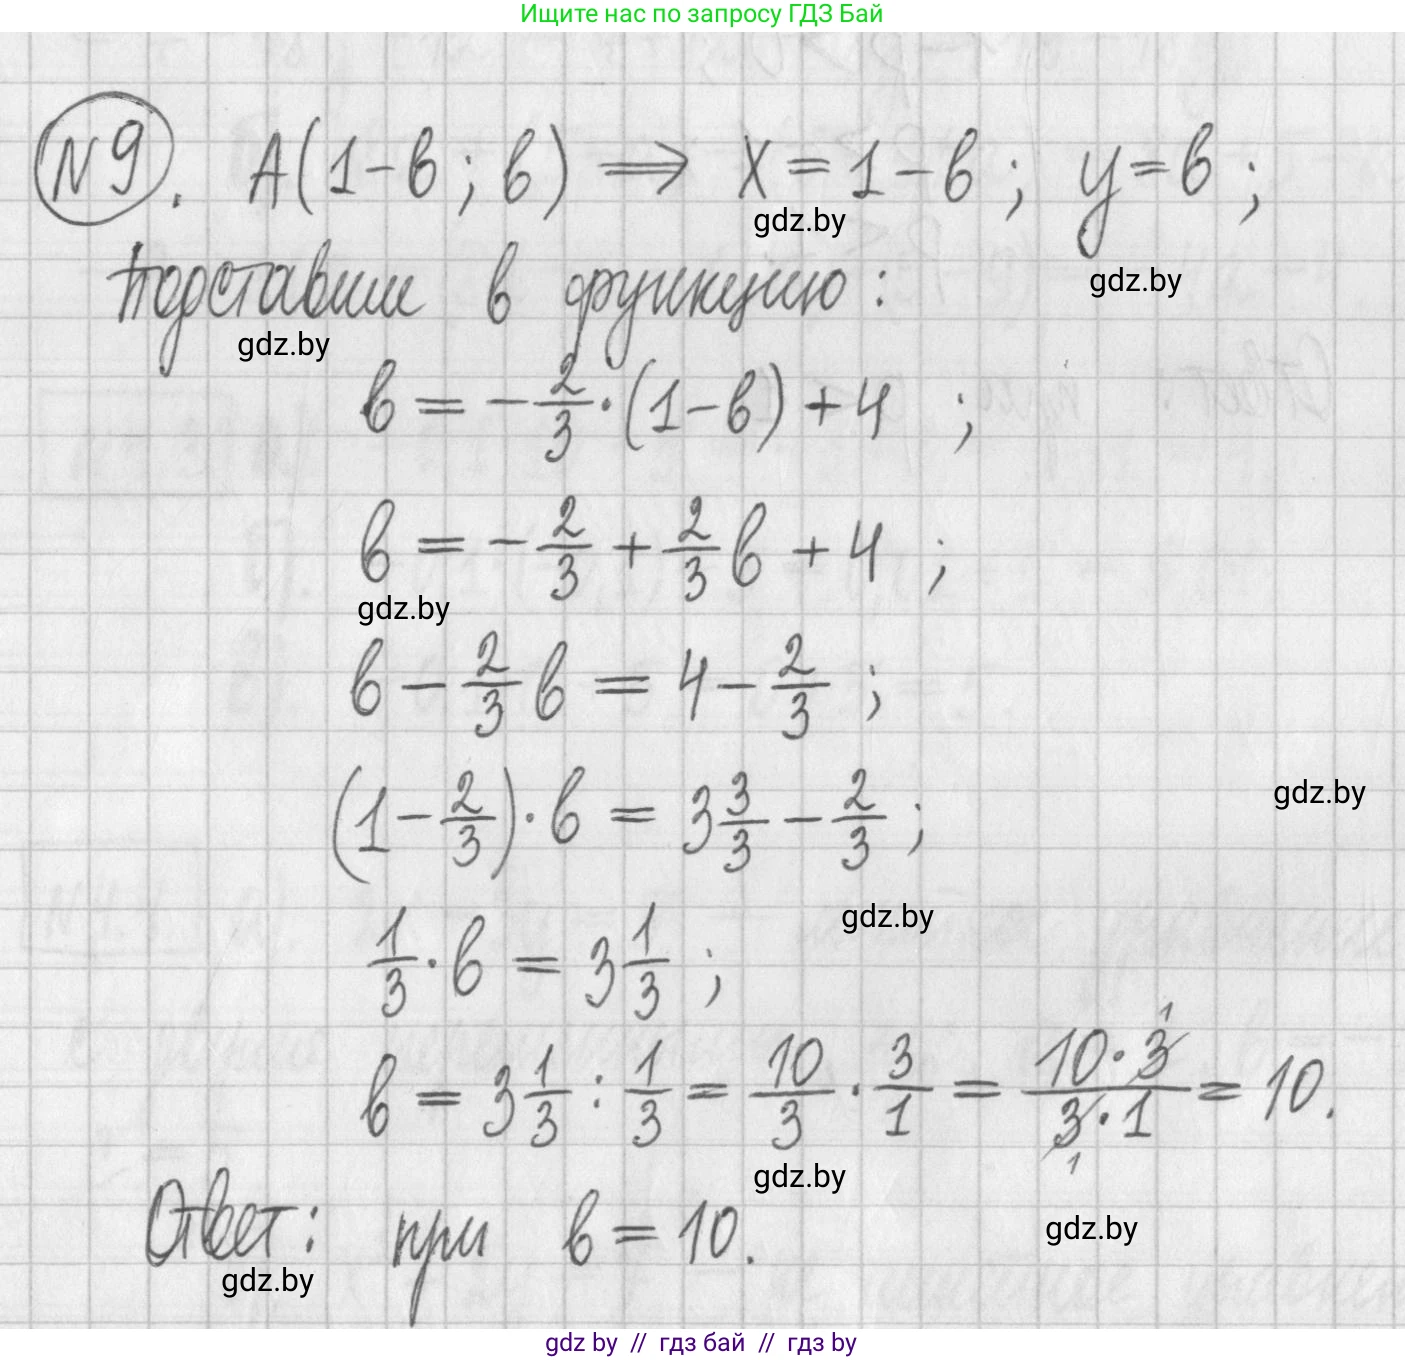 Ищите нас по запросу ГДЗ Бай
№9. А(1-в; в) ⟹ x = 1-в; y = в;
gdz.by
Подставим в функцию:
gdz.by
gdz.by
в = -2/3·(1-в)+4;
в = -2/3 + 2/3в + 4;
gdz.by
в - 2/3в = 4 - 2/3;
(1 - 2/3)·в = 3 3/3 - 2/3;
gdz.by
gdz.by
1/3·в = 3 1/3;
в = 3 1/3 : 1/3 = 10/3 · 3/1 = 10·3/3·1 = 10.
1
1
gdz.by
Ответ: при в = 10.
gdz.by
gdz.by
gdz by // гдз бай // гдз by